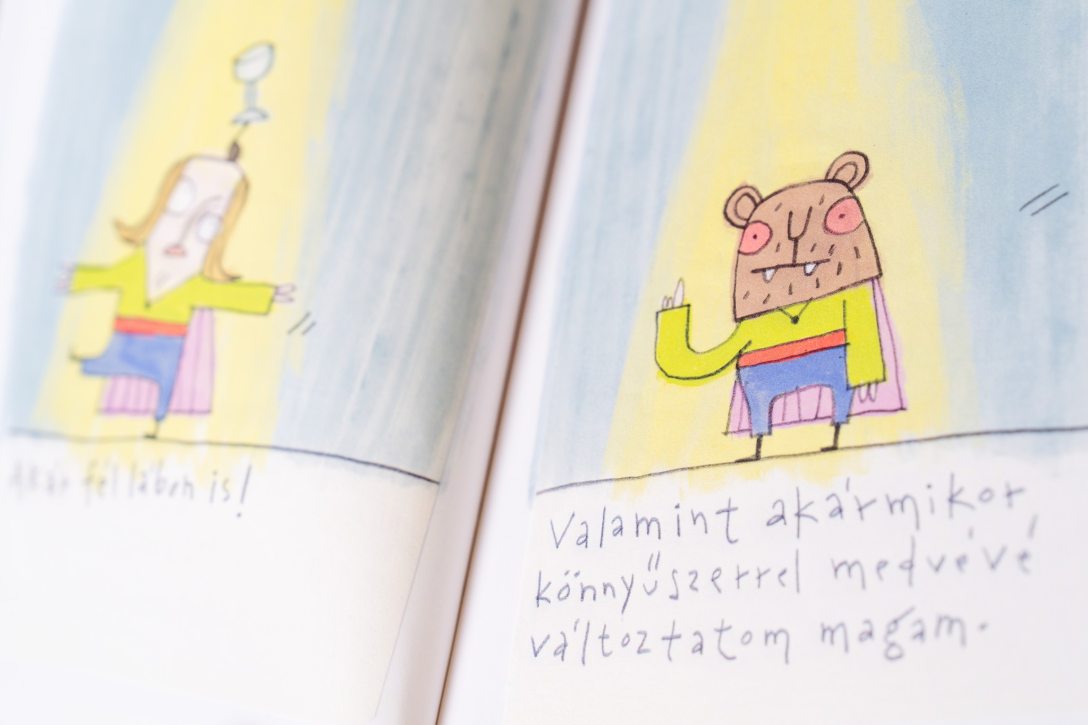 Akár fél lábon is!
Valamint akármikor
könnyűszerrel medvévé
változtatom magam.